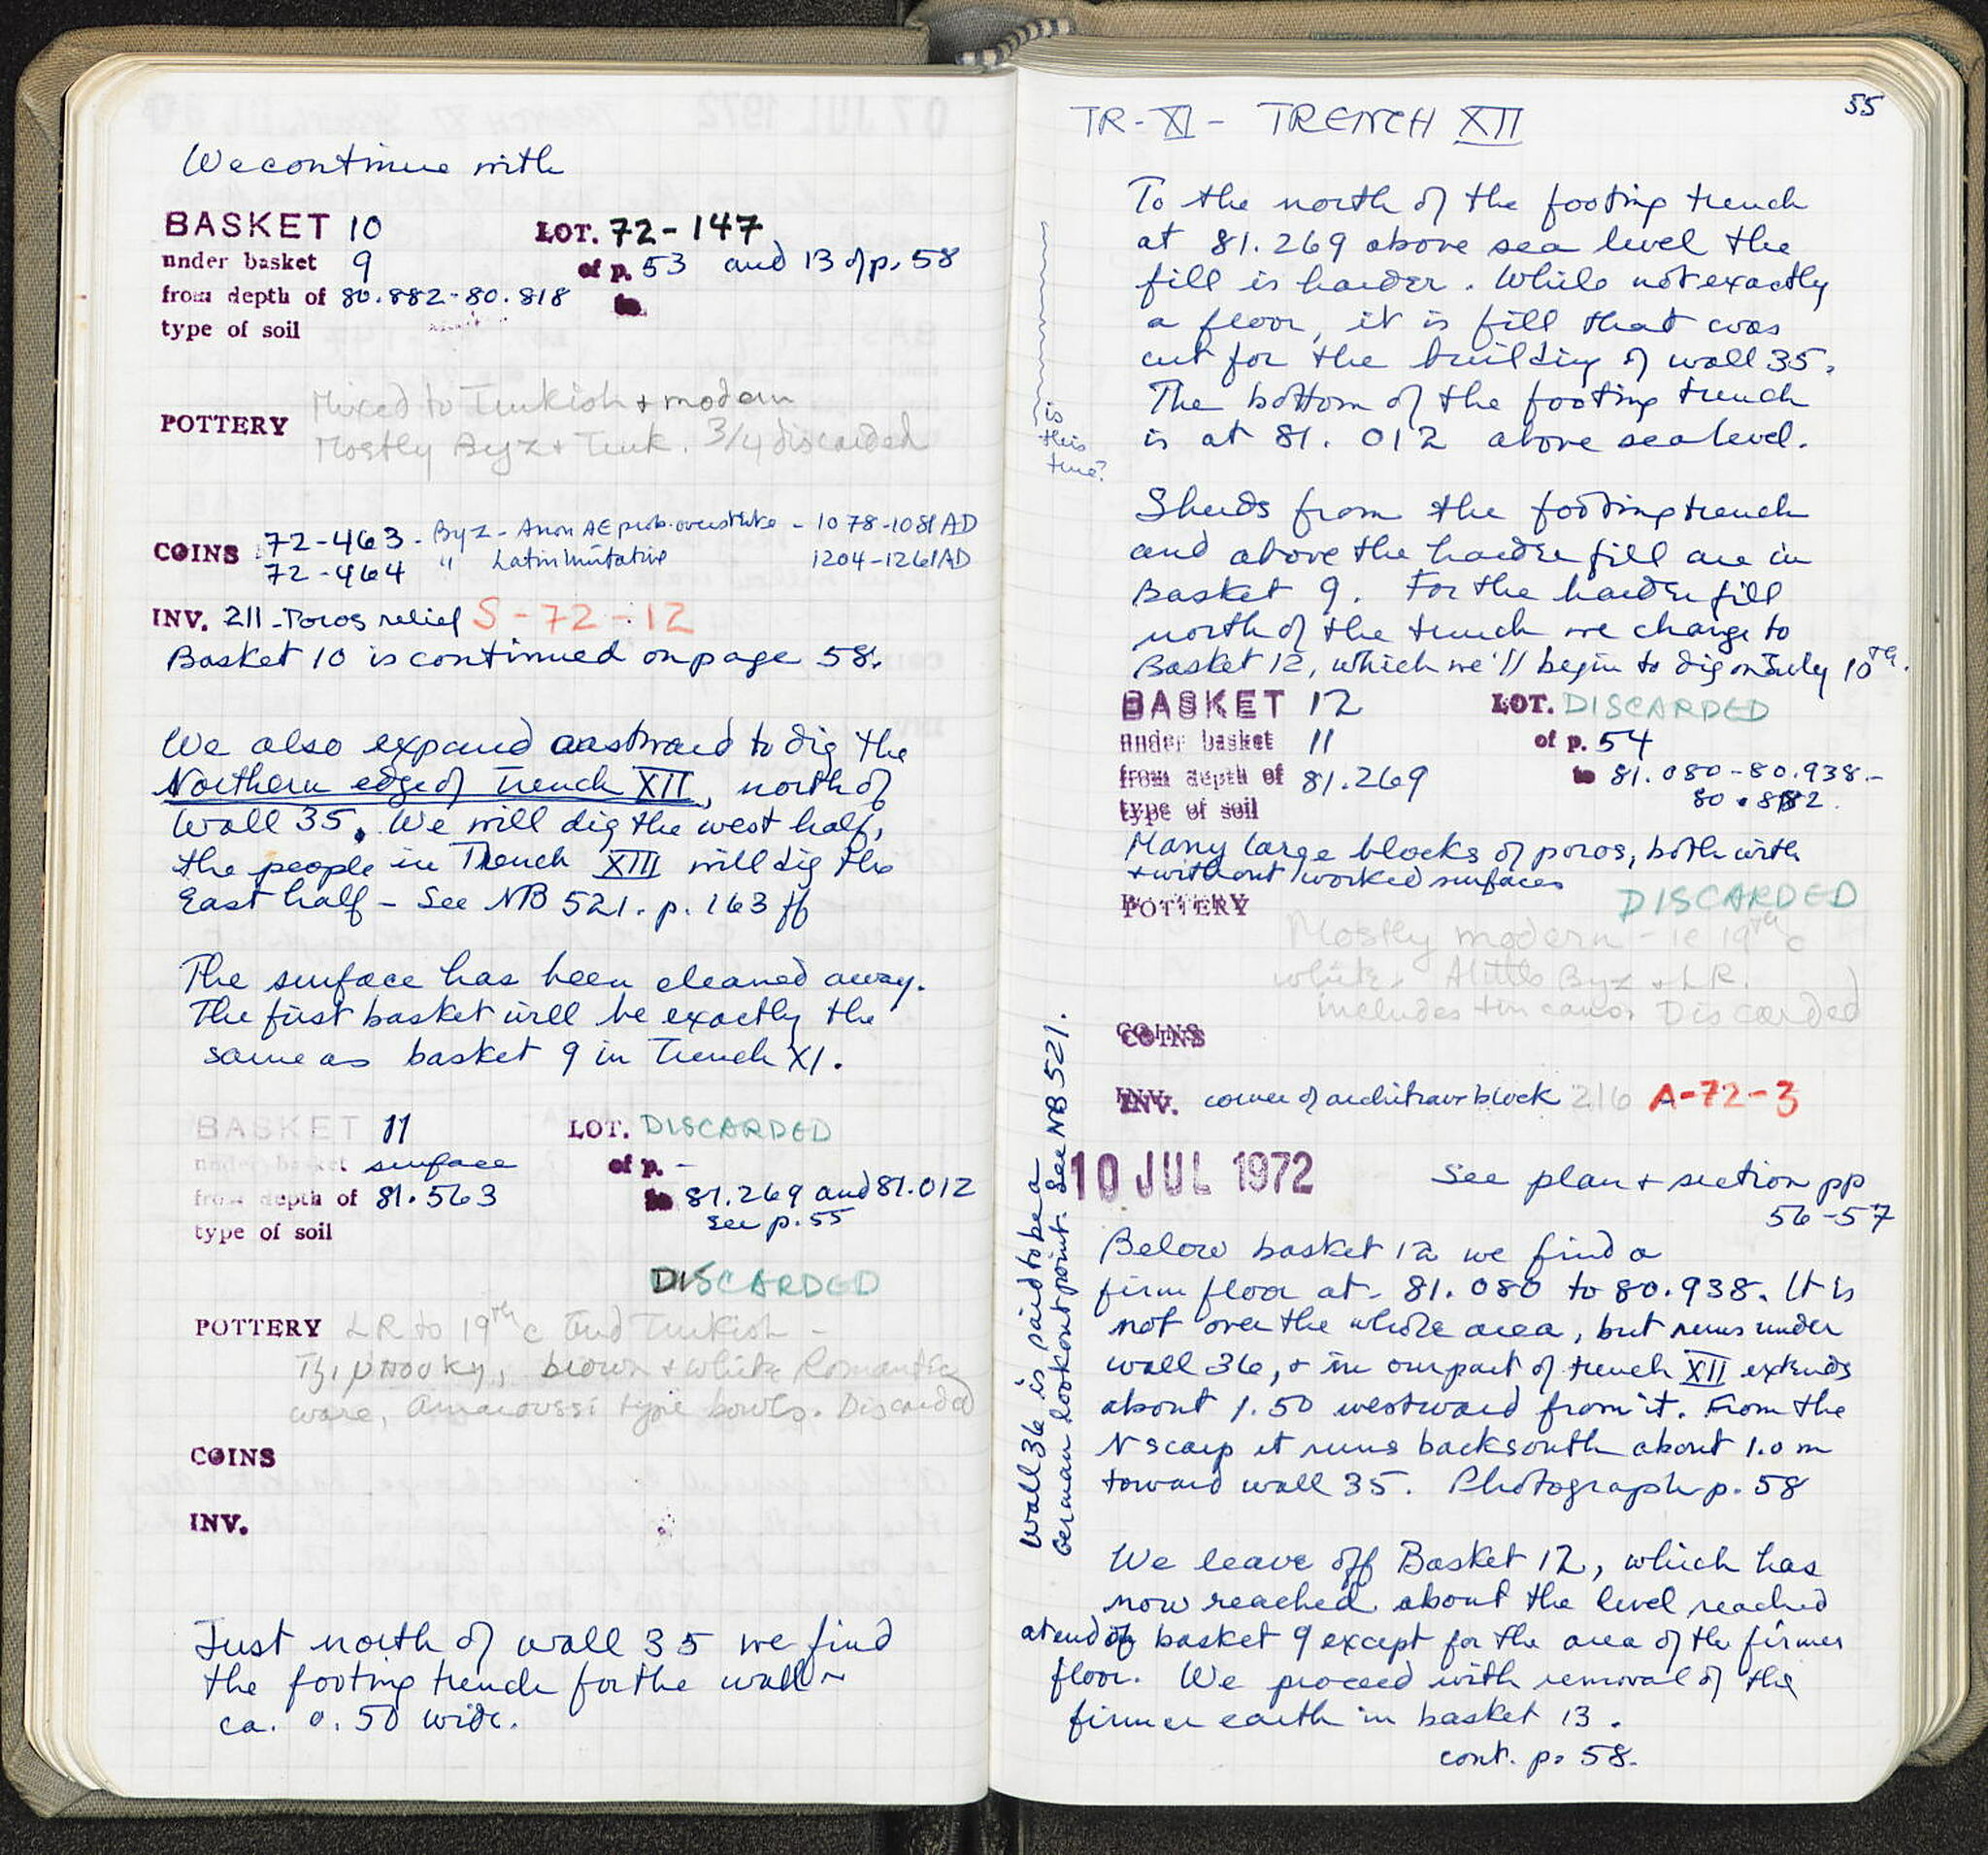 We continue with
BASKET 10 LOT. 72-147
under basket 9 of p. 53 and 13 of p. 58
from depth of 80.882-80.818 to
type of soil
POTTERY Mixed to Turkish + modern
Mostly Byz + Turk. 3/4 discarded
COINS 72-463 - Byz - Anon AE prob. overstrike - 1078-1081 AD
72-464 " Latin Imitative 1204-1261 AD
INV. 211 - Poros relief S-72-12
Basket 10 is continued on page 58.
We also expand eastward to dig the
Northern edge of Trench XII, north of
Wall 35. We will dig the west half,
the people in Trench XIII will dig the
East half - See NB 521. p. 163 ff
The surface has been cleaned away.
The first basket will be exactly the
same as basket 9 in Trench XI.
BASKET 11 LOT. DISCARDED
under basket surface of p. -
from depth of 81.563 to 81.269 and 81.012
see p. 55
type of soil
DISCARDED
POTTERY LR to 19th c and Turkish -
brown + white Romantic
ware, Amaroussi type bowls. Discarded
COINS
INV.
Just north of wall 35 we find
the footing trench for the wall ~
ca. 0.50 wide.
55
TR-XI - TRENCH XII
To the north of the footing trench
at 81.269 above sea level the
fill is harder. While not exactly
a floor, it is fill that was
cut for the building of wall 35.
The bottom of the footing trench
is at 81.012 above sea level.
is
this
true?
Sherds from the footing trench
and above the harder fill are in
Basket 9. For the harder fill
north of the trench we change to
Basket 12, which we'll begin to dig on July 10th.
BASKET 12 LOT. DISCARDED
under basket 11 of p. 54
from depth of 81.269 to 81.080-80.938-
80.882.
type of soil
Many large blocks of poros, both with
+ without worked surfaces
POTTERY DISCARDED
Mostly modern - ie 19th c
white. A little Byz + LR.
includes tin cans. Discarded
COINS
INV. corner of architrave block 216 A-72-3
10 JUL 1972 See plan + section pp
56-57
Below basket 12 we find a
firm floor at - 81.080 to 80.938. It is
not over the whole area, but runs under
wall 36, + in our part of trench XII extends
about 1.50 westward from it. From the
N scarp it runs back south about 1.0 m
toward wall 35. Photograph p. 58
Wall 36 is said to be a
German lookout point. See NB 521.
We leave off Basket 12, which has
now reached about the level reached
at end of basket 9 except for the area of the firmer
floor. We proceed with removal of the
firmer earth in basket 13.
cont. p. 58.